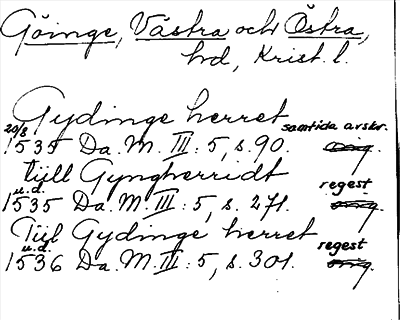 Göinge, Västra och Östra,
hd, Krist. l.
Gydinge herret
20/8 samtida avskr.
1535 Da. M. III: 5, s. 90. orig.
tiill Gyngherridt
u.d. regest
1535 Da. M. III: 5, s. 271. orig.
Tiil Gydinge herret
u.d. regest
1536 Da. M. III: 5, s. 301. orig.